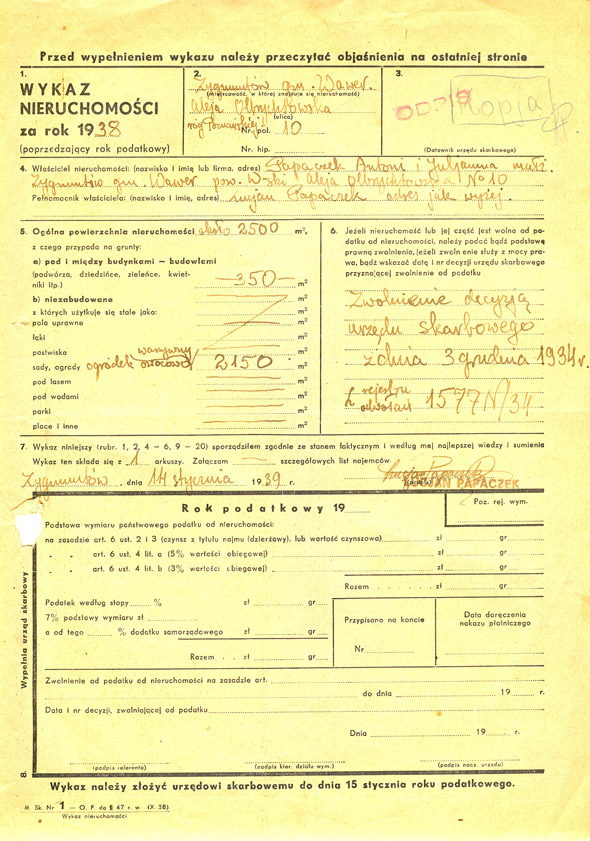 Przed wypełnieniem wykazu należy przeczytać objaśnienia na ostatniej stronie
1.
WYKAZ
NIERUCHOMOŚCI
za rok 1938
(poprzedzający rok podatkowy)
2.
Zygmuntów gm. Wawer.
(miejscowość, w której znajduje się nieruchomość)
Aleja Olbrychtowska
(ulica)
róg Poznańskiej!!
Nr. pol. 10
Nr. hip.
3.
ODPIS
Kopja
(Datownik urzędu skarbowego)
4. Właściciel nieruchomości: (nazwisko i imię lub firma, adres) Papaczek Antoni i Juljanna małż.
Zygmuntów gm. Wawer pow. W-ski Aleja Olbrychtowska No 10
Pełnomocnik właściciela: (nazwisko i imię, adres) Lucjan Papaczek adres jak wyżej.
5. Ogólna powierzchnia nieruchomości około 2500 m²,
z czego przypada na grunty:
a) pod i między budynkami — budowlami
(podwórza, dziedzińce, zieleńce, kwiet-
niki itp.) —350— m²
b) niezabudowane m²
z których użytkuje się stale jako:
pola uprawne m²
łąki m²
pastwiska m²
warzywny
sady, ogrody ogródek owocowy 2150 m²
pod lasem m²
pod wodami m²
parki m²
place i inne m²
6. Jeżeli nieruchomość lub jej część jest wolna od po-
datku od nieruchomości, należy podać bądź podstawę
prawną zwolnienia, jeżeli zwolnienie służy z mocy pra-
wa, bądź wskazać datę i nr decyzji urzędu skarbowego
przyznającej zwolnienie od podatku
Zwolnienie decyzją
urzędu skarbowego
z dnia 3 grudnia 1934 r.
L. rejestru
odwołań 1577 N/34
7. Wykaz niniejszy (rubr. 1, 2, 4 — 6, 9 — 20) sporządziłem zgodnie ze stanem faktycznym i według mej najlepszej wiedzy i sumienia
Wykaz ten składa się z 1 arkuszy. Załączam — szczegółowych list najemców
Zygmuntów, dnia 14 stycznia 1939 r.
Lucjan Papaczek
LUCJAN PAPACZEK
Rok podatkowy 19
Poz. rej. wym.
Podstawa wymiaru państwowego podatku od nieruchomości:
na zasadzie art. 6 ust. 2 i 3 (czynsz z tytułu najmu (dzierżawy), lub wartość czynszowa) zł gr
„ „ art. 6 ust. 4 lit. a (5% wartości obiegowej) zł gr
„ „ art. 6 ust. 4 lit. b (3% wartości obiegowej) zł gr
Razem zł gr
Podatek według stopy % zł gr
7% podstawy wymiaru zł
a od tego % dodatku samorządowego zł gr
Razem zł gr
Przypisano na koncie
Nr
Data doręczenia
nakazu płatniczego
Zwolnienie od podatku od nieruchomości na zasadzie art.
do dnia 19 r.
Data i nr decyzji, zwalniającej od podatku
Dnia 19 r.
(podpis referenta) (podpis kier. działu wym.) (podpis nacz. urzędu)
Wypełnia urząd skarbowy
8.
Wykaz należy złożyć urzędowi skarbowemu do dnia 15 stycznia roku podatkowego.
M. Sk. Nr 1 — O. P. do § 47 r. w. (X. 38).
Wykaz nieruchomości